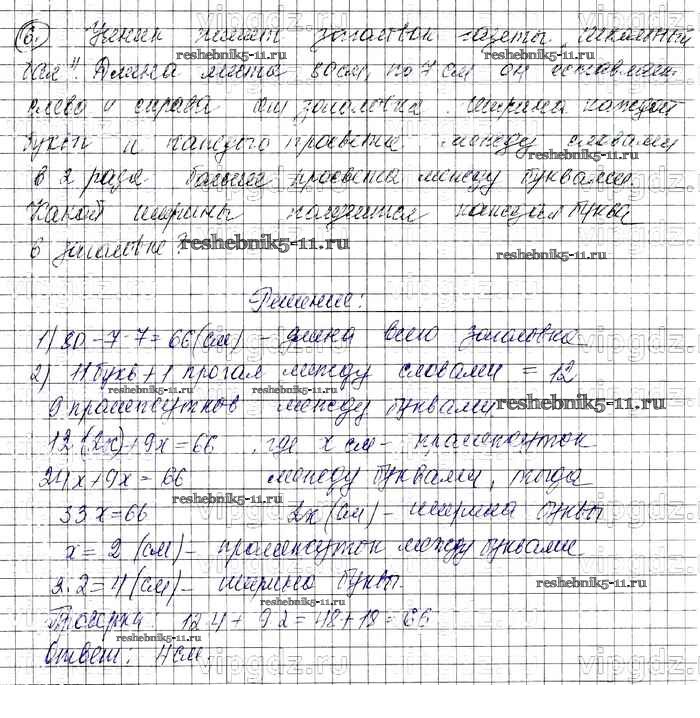 6. Ученик пишет заголовок газеты „Школьный
бал". Длина листа 80 см, по 7 см он оставляет
слева и справа от заголовка. Ширина каждой
буквы и каждого просвета между словами
в 2 раза больше просвета между буквами.
Какой ширины получится каждая буква
в заголовке?
Решение:
1) 80 - 7 - 7 = 66 (см) - длина всего заголовка
2) 11 букв + 1 прогал между словами = 12
9 промежутков между буквами
12 (2х) + 9х = 66, где х см - промежуток
24х + 9х = 66 между буквами, тогда
33х = 66 2х (см) - ширина буквы
х = 2 (см) - промежуток между буквами
2·2 = 4 (см) - ширина буквы.
Проверка: 12·4 + 9·2 = 48 + 18 = 66
Ответ: 4 см.
reshebnik5-11.ru
vipgdz.ru